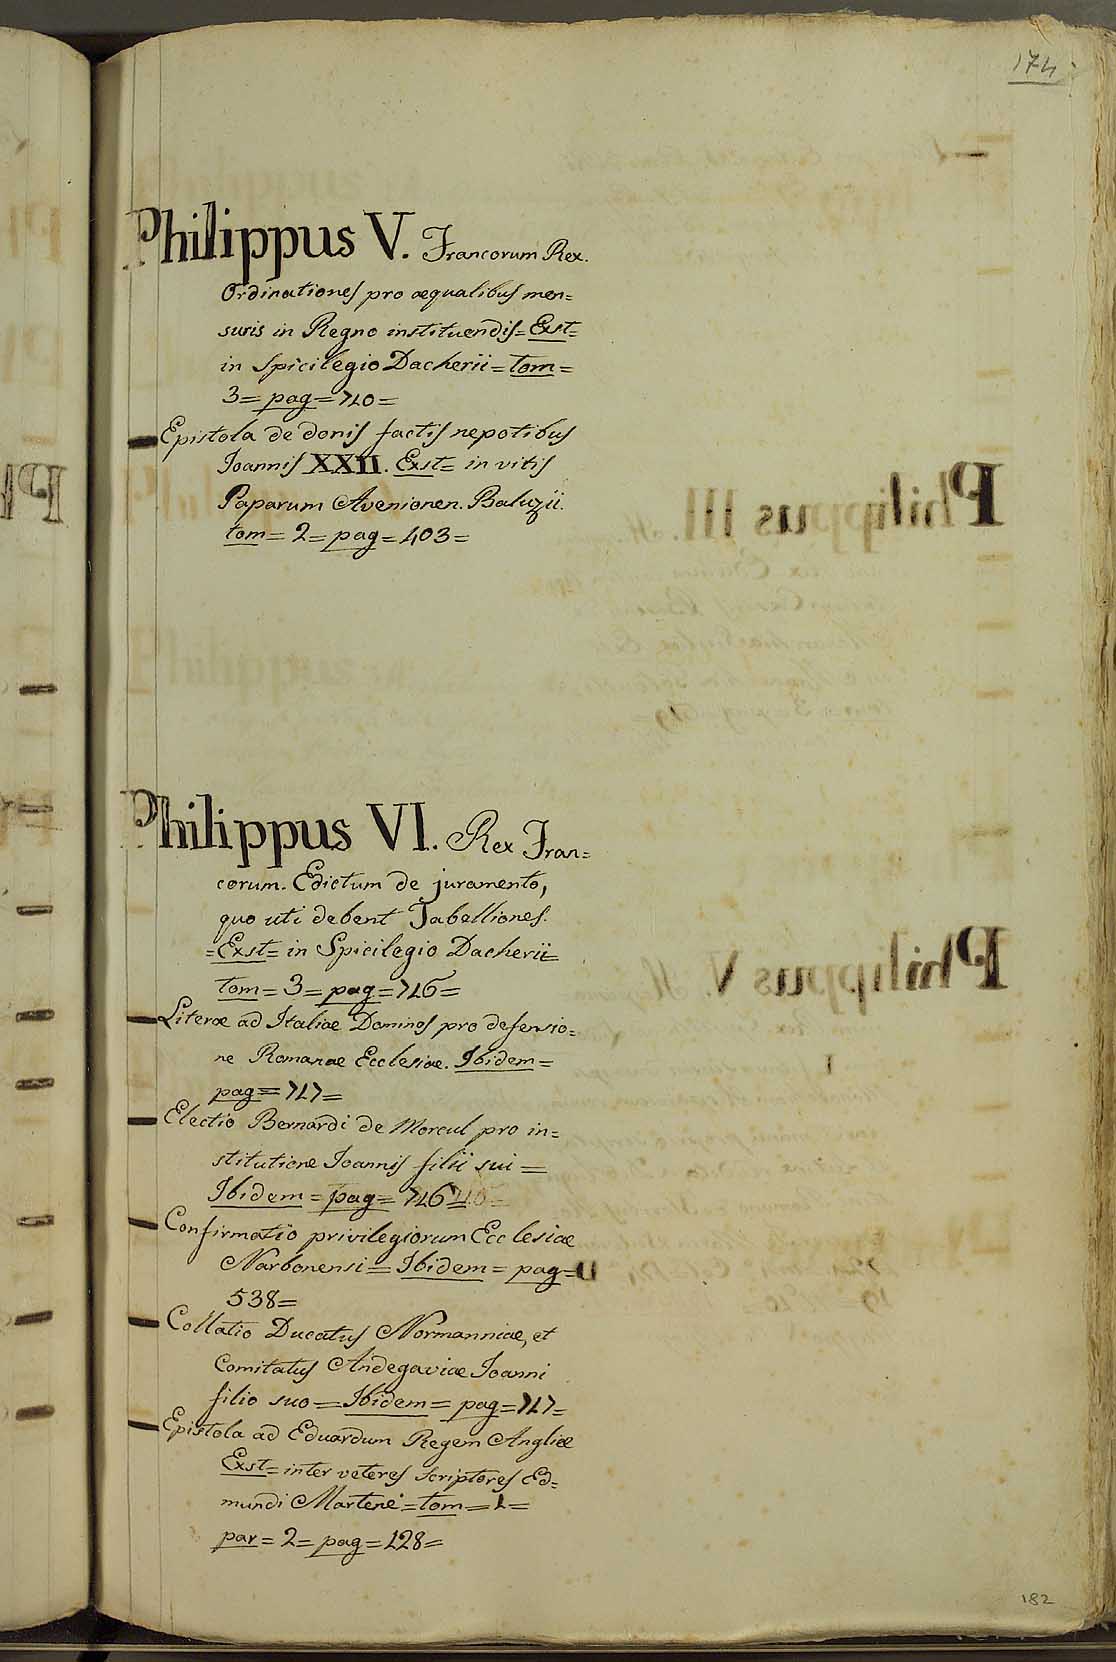 174
Philippus V. Francorum Rex.
Ordinationes pro æqualibus men=
suris in Regno instituendis=Exst=
in Spicilegio Dacherii=tom=
3=pag=710=
Epistola de donis factis nepotibus
Joannis XXII. Exst= in vitis
Paparum Avenionen. Baluzii.
tom=2=pag=403=
Philippus VI. Rex Fran=
corum. Edictum de juramento,
quo uti debent Tabelliones.
=Exst= in Spicilegio Dacherii=
tom=3=pag=716=
Literæ ad Italiæ Dominos pro defensio=
ne Romanae Ecclesiae. Ibidem=
pag=717=
Electio Bernardi de Morcul pro in=
stitutione Joannis filii sui=
Ibidem=pag=716=
Confirmatio privilegiorum Ecclesiae
Narbonensi=Ibidem=pag=
538=
Collatio Ducatus Normanniae, et
Comitatus Andegaviae Joanni
filio suo=Ibidem=pag=717=
Epistola ad Eduardum Regem Angliæ
Exst=inter veteres scriptores Ed=
mundi Martenè=tom=1=
par=2=pag=128=
182